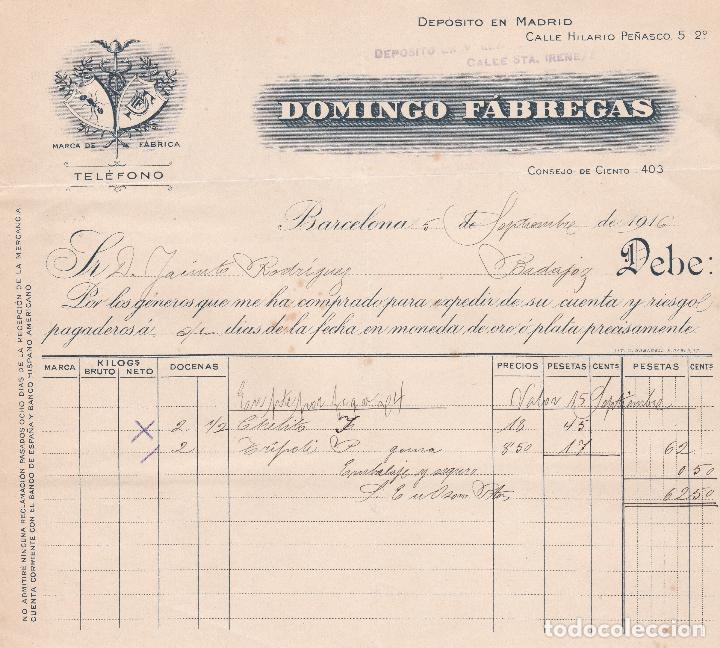 DEPÓSITO EN MADRID
CALLE HILARIO PEÑASCO, 5 2º
DEPOSITO EN
CALLE STA. IRENE,
DOMINGO FÁBREGAS
MARCA DE FÁBRICA
TELÉFONO
CONSEJO DE CIENTO 403
Barcelona 5 de Septiembre de 1916
Sr. D. Jacinto Rodríguez Badajoz Debe:
Por los géneros que me ha comprado para expedir de su cuenta y riesgo
pagaderos á días de la fecha en moneda de oro ó plata precisamente.
MARCA KILOGS BRUTO NETO DOCENAS PRECIOS PESETAS CENTS PESETAS CENTS
Valor 15 Septiembre
2 1/2 18 45
2 Trípoli P goma 8 50 17 62
Embalaje y seguro 0 50
62 50
NO ADMITIRÉ NINGUNA RECLAMACIÓN PASADOS OCHO DIAS DE LA RECEPCIÓN DE LA MERCANCIA
CUENTA CORRIENTE CON EL BANCO DE ESPAÑA Y BANCO HISPANO AMERICANO
todocoleccion